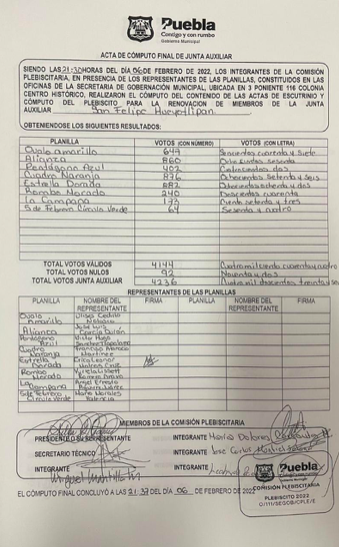 Puebla
Contigo y con rumbo
Gobierno Municipal
ACTA DE CÓMPUTO FINAL DE JUNTA AUXILIAR
SIENDO LAS 21:30 HORAS DEL DÍA 06 DE FEBRERO DE 2022, LOS INTEGRANTES DE LA COMISIÓN
PLEBISCITARIA, EN PRESENCIA DE LOS REPRESENTANTES DE LAS PLANILLAS, CONSTITUIDOS EN LAS
OFICINAS DE LA SECRETARIA DE GOBERNACIÓN MUNICIPAL, UBICADA EN 3 PONIENTE 116 COLONIA
CENTRO HISTÓRICO, REALIZARON EL CÓMPUTO DEL CONTENIDO DE LAS ACTAS DE ESCRUTINIO Y
CÓMPUTO DEL PLEBISCITO PARA LA RENOVACIÓN DE MIEMBROS DE LA JUNTA
AUXILIAR San Felipe Hueyotlipan
OBTENIENDOSE LOS SIGUIENTES RESULTADOS:
PLANILLA VOTOS (CON NÚMERO) VOTOS (CON LETRA)
Ovalo Amarillo 647 cuarenta y siete
Alianza 860 Ochocientos sesenta
Pentágono Azul 402 Cuatrocientos dos
Cuadro Naranja 876 Ochocientos setenta y seis
Estrella Dorada 882 Ochocientos ochenta y dos
Rombo Morado 240 Doscientos cuarenta
La Campana 173 Ciento setenta y tres
5 de Febrero Circulo Verde 64 Sesenta y cuatro
TOTAL VOTOS VÁLIDOS 4144 Cuatro mil ciento cuarenta y cuatro
TOTAL VOTOS NULOS 92 Noventa y dos
TOTAL VOTOS JUNTA AUXILIAR 4236 Cuatro mil doscientos treinta y seis
REPRESENTANTES DE LAS PLANILLAS
PLANILLA NOMBRE DEL REPRESENTANTE FIRMA PLANILLA NOMBRE DEL REPRESENTANTE FIRMA
Ovalo Amarillo
Alianza José Luis García Durán
Pentágono Azul Victor Hugo
Cuadro Naranja Francisco Martinez
Estrella Dorada Erica Leonor Cruz
Rombo Morado
La Campana Angel Ernesto
5 de Febrero Circulo Verde Morales Valencia
MIEMBROS DE LA COMISIÓN PLEBISCITARIA
PRESIDENTE O SU REPRESENTANTE INTEGRANTE Maria Dolores
SECRETARIO TÉCNICO INTEGRANTE Jose Carlos
INTEGRANTE Miguel INTEGRANTE
EL CÓMPUTO FINAL CONCLUYÓ A LAS 21:37 DEL DÍA 06 DE FEBRERO DE 2022
Puebla
COMISIÓN PLEBISCITARIA
PLEBISCITO 2022
O/111/SEGOB/CPLE/E